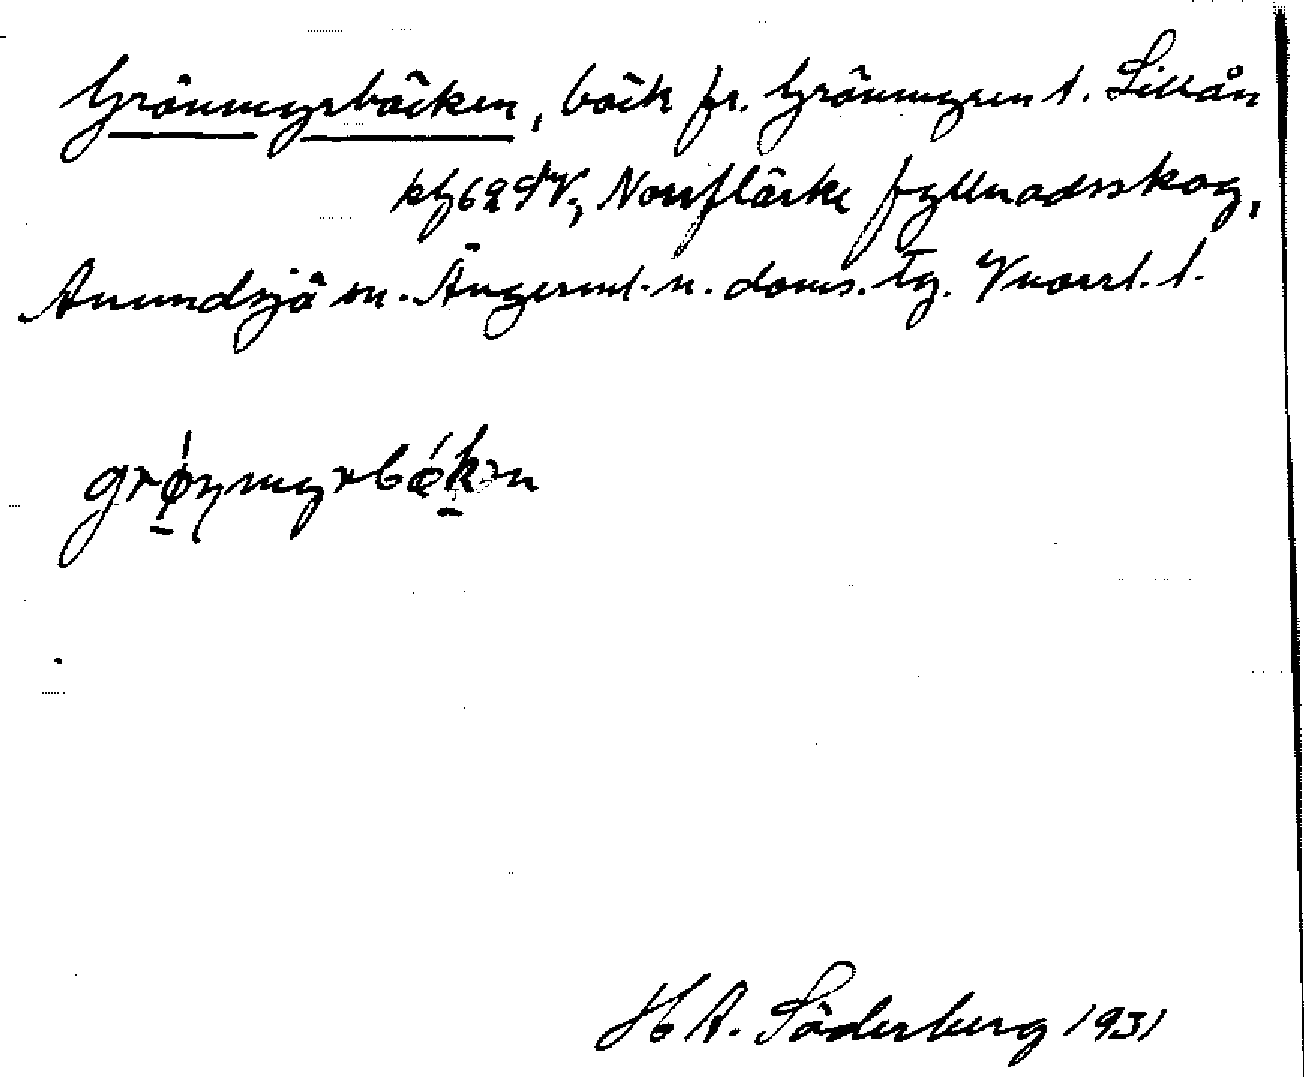 Grönmyrbäcken, bäck fr. Grönmyren t. Lillån
kbl 62 SV, Norrflärke fyllnadsskog,
Anundsjö sn. Ångerml. n. doms. tg. Vnorrl. l.
grǿnmyrbǽkən
H A. Söderberg 1931